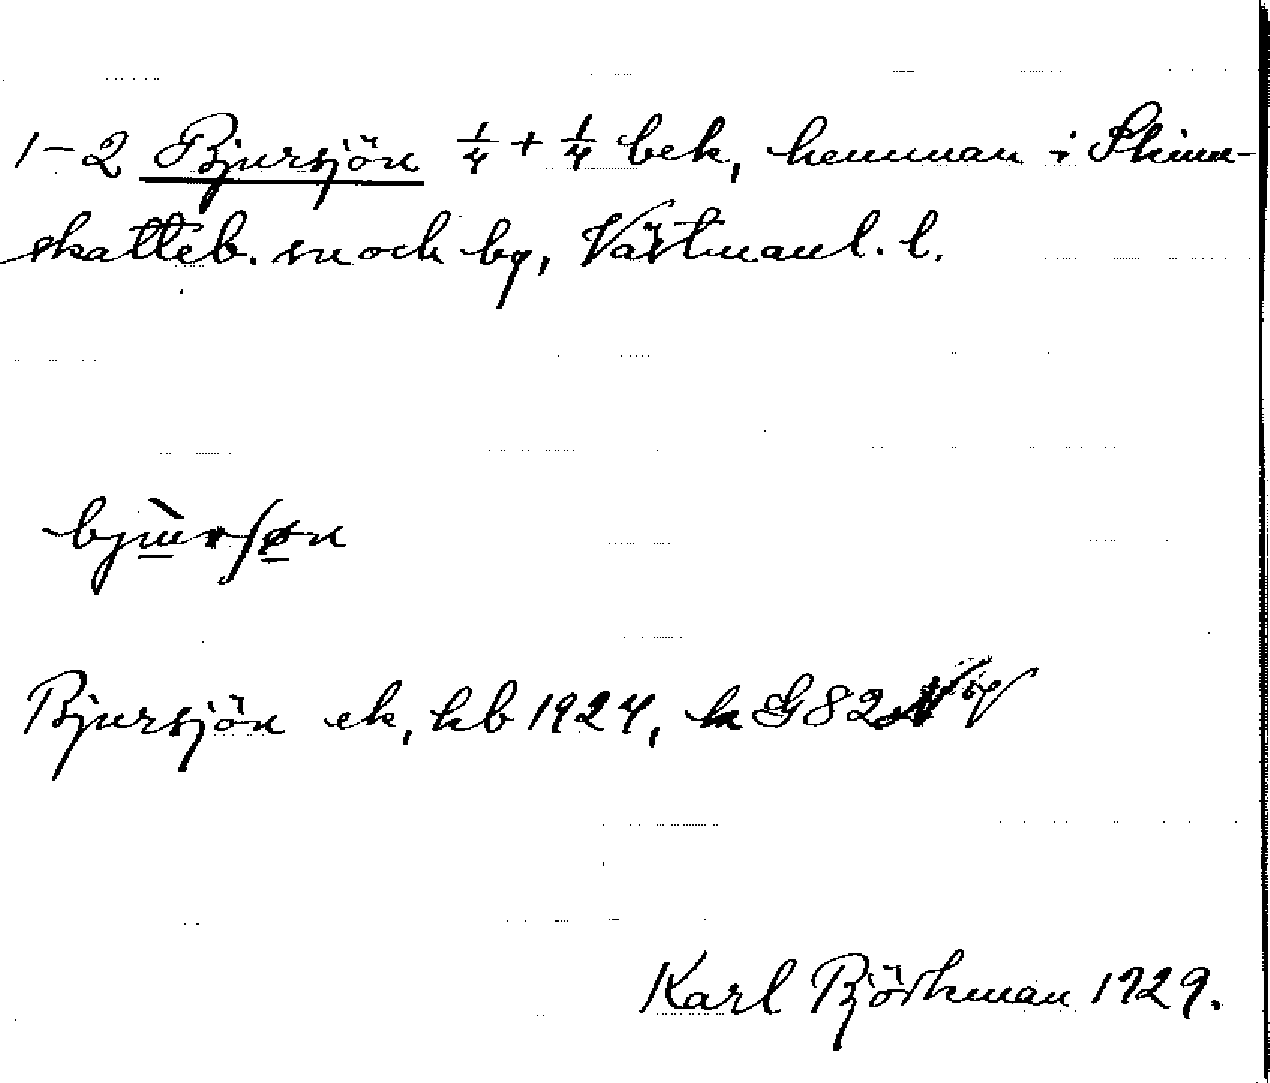 1-2 Bjursjön ¼ + ¼ bek, hemman i Skinn-
skatteb. sn och by, Västmanl. l.
bjùrʃøn
Bjursjön ek, kb 1927, k G 82
Karl Björkman 1929.